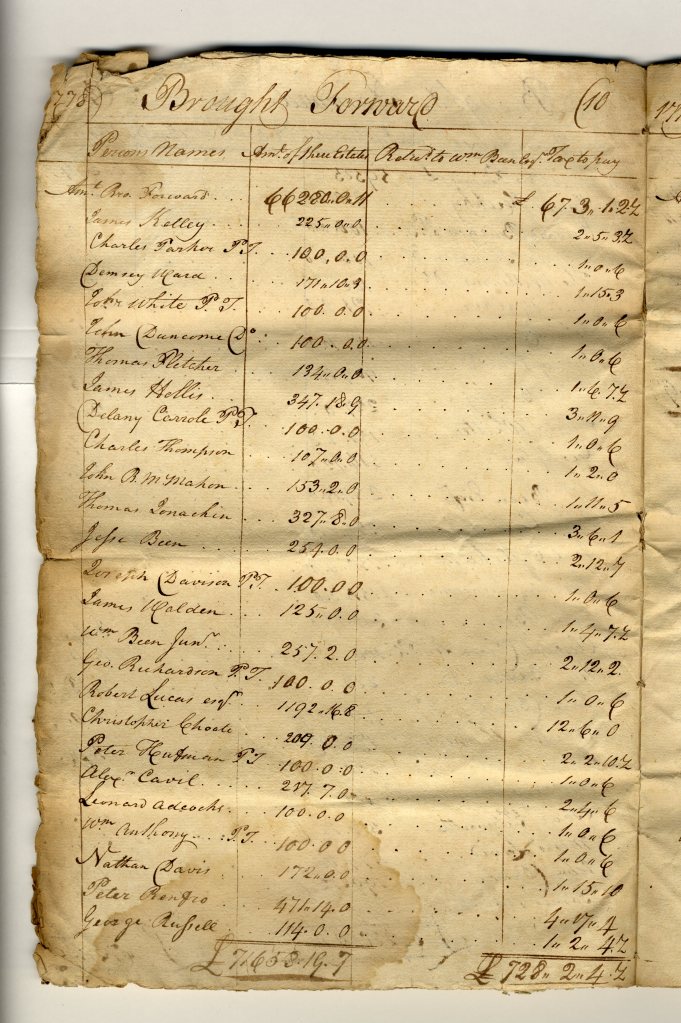 1778 Brought Forward (10
Persons Names Amt. of there Estates Retur'd to Wm Been Esqr. Tax to pay
Amt. Bro. Forward 66280.0.11 £ 673.1.2½
James Kelley 225.0.0 2.5.3½
Charles Parker P.T. 100.0.0 1.0.6
Demsey Ward 171.10.3 1.15.3
John White P.T. 100.0.0 1.0.6
John Duncome Do 100.0.0 1.0.6
Thomas Fletcher 134.0.0 1.6.7½
James Hollis 347.18.9 3.11.9
Delany Carrole P.T. 100.0.0 1.0.6
Charles Thompson 107.0.0 1.2.0
John B. McMahon 153.2.0 1.11.5
Thomas Jonachin 327.8.0 3.6.4
Jesse Been 254.0.0 2.12.7
Joseph Davison P.T. 100.0.0 1.0.6
James Walden 125.0.0 1.4.7½
Wm Been Junr. 257.2.0 2.12.2
Geo. Richardson P.T. 100.0.0 1.0.6
Robert Lucas esqr 1192.16.8 12.6.0
Christopher Choate 209.0.0 2.2.10½
Peter Hufman P.T 100.0.0 1.0.6
Alexr. Cavil 217.7.0 2.4.6
Leonard Adcocks 100.0.0 1.0.6
Wm Anthony P.T. 100.0.0 1.0.6
Nathan Davis 172.0.0 1.15.10
Peter Renfro 471.14.0 4.17.4
George Russell 114.0.0 1.2.4½
£ 71653.19.7 £ 728.2.4½